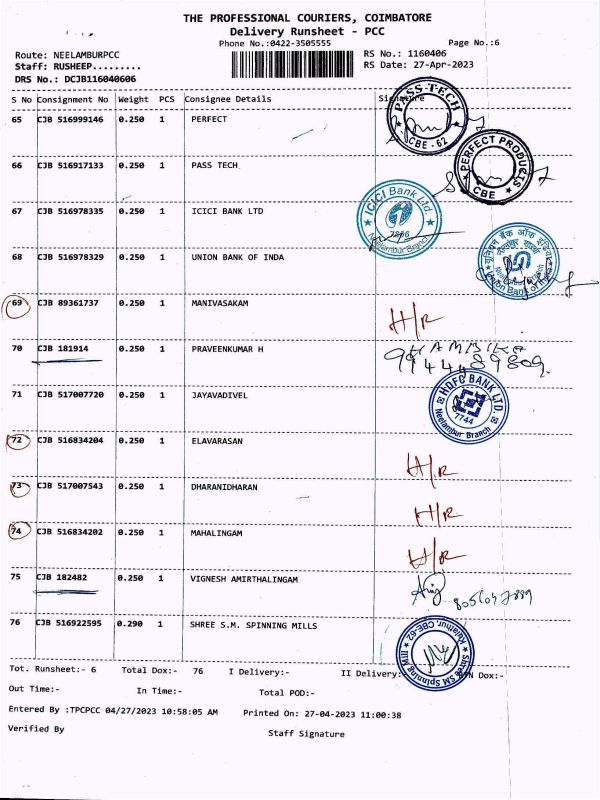 THE PROFESSIONAL COURIERS, COIMBATORE
Delivery Runsheet - PCC
Phone No.:0422-3505555 Page No.:6
Route: NEELAMBURPCC RS No.: 1160406
Staff: RUSHEEP......... RS Date: 27-Apr-2023
DRS No.: DCJB116040606
S No Consignment No Weight PCS Consignee Details Signature
65 CJB 516999146 0.250 1 PERFECT
PASS-TECH
CBE-62
66 CJB 516917133 0.250 1 PASS TECH
PERFECT PRODUCTS
CBE
67 CJB 516978335 0.250 1 ICICI BANK LTD
ICICI Bank Ltd.
Neelambur Branch
68 CJB 516978329 0.250 1 UNION BANK OF INDA
यूनियन बैंक ऑफ इंडिया
Union Bank of India
69 CJB 89361737 0.250 1 MANIVASAKAM H/R
70 CJB 181914 0.250 1 PRAVEENKUMAR H
9944489809
71 CJB 517007720 0.250 1 JAYAVADIVEL
HDFC BANK LTD.
7744
Neelambur Branch
72 CJB 516834204 0.250 1 ELAVARASAN H/R
73 CJB 517007543 0.250 1 DHARANIDHARAN H/R
74 CJB 516834202 0.250 1 MAHALINGAM H/R
75 CJB 182482 0.250 1 VIGNESH AMIRTHALINGAM
76 CJB 516922595 0.290 1 SHREE S.M. SPINNING MILLS
Shree SM Spinning Mills
CBE-62
Tot. Runsheet:- 6 Total Dox:- 76 I Delivery:- II Delivery: Dox:-
Out Time:- In Time:- Total POD:-
Entered By :TPCPCC 04/27/2023 10:58:05 AM Printed On: 27-04-2023 11:00:38
Verified By Staff Signature